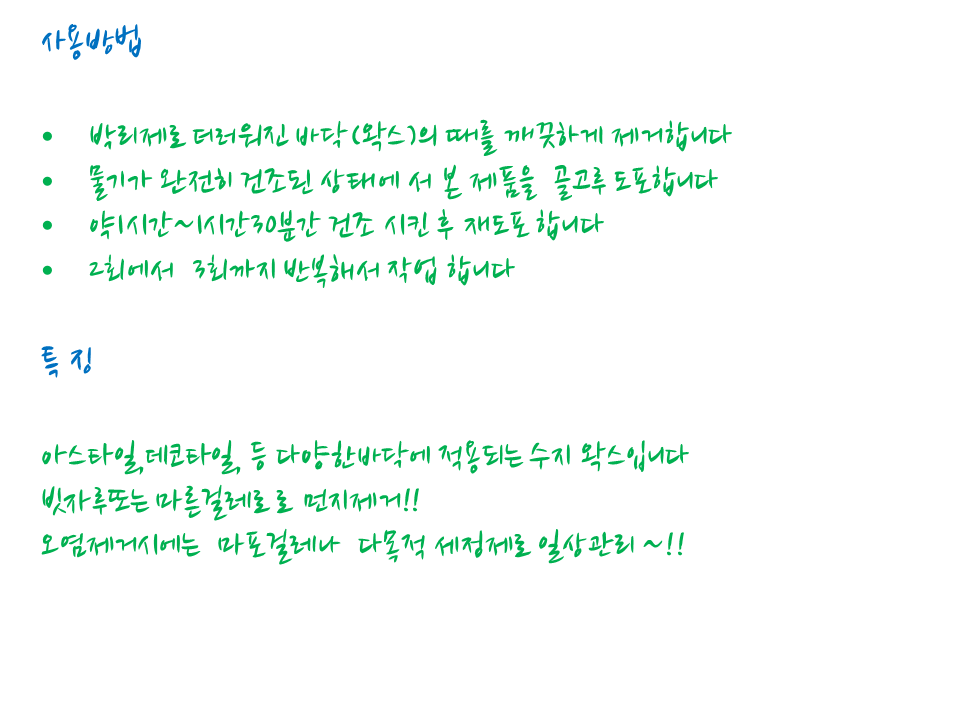 사용방법
• 박리제로 더러워진 바닥(왁스)의 때를 깨끗하게 제거합니다
• 물기가 완전히 건조된 상태에 서 본 제품을 골고루 도포합니다
• 약1시간~1시간30분간 건조 시킨 후 재도포 합니다
• 2회에서 3회까지 반복해서 작업 합니다
특 징
아스타일,데코타일, 등 다양한바닥에 적용되는 수지 왁스입니다
빗자루또는 마른걸레로 로 먼지제거!!
오염제거시에는 마포걸레나 다목적 세정제로 일상관리 ~!!